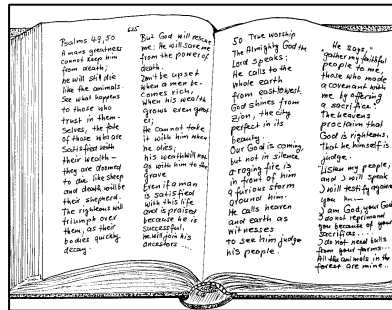 Psalms 49,50
A mans greatness
cannot keep him
from death;
he will still die
like the animals.
See what happens
to those who
trust in them-
selves, the fate
of those who are
Satisfied with
their wealth -
they are doomed
to die like sheep
and death will be
their shepherd.
The righteous will
triumph over
them, as their
bodies quickly
decay.
625
But God will rescue
me; He will save me
from the power of
death.
Don't be upset
when a man be-
comes rich,
When his wealth
grows even great
er;
He cannot take
it with him when
he dies;
his wealth will not
go with him to the
grave
Even if a man
is satisfied
with this life
and is praised
because he is
successful,
he will join his
ancestors...
50 True worship
The Almighty God the
Lord speaks;
He calls to the
whole earth
from east to west.
God shines from
zion, the city
perfect in its
beauty.
Our God is coming,
but not in silence
a raging fire is
in front of him
a furious storm
around him.
He calls heaven
and earth as
witnesses
to see him judge
his people.
He says,
"gather my faithful
people to me,
those who made
a covenant with
me by offering
a sacrifice."
The heavens
proclaim that
God is righteous,
that he himself is
judge.
"Listen my people,
and I will speak
I will testify against
you
I am God, your God
I do not reprimand
you because of your
sacrifies...
I do not need bulls
from your farms...
All the animals in the
forest are mine..